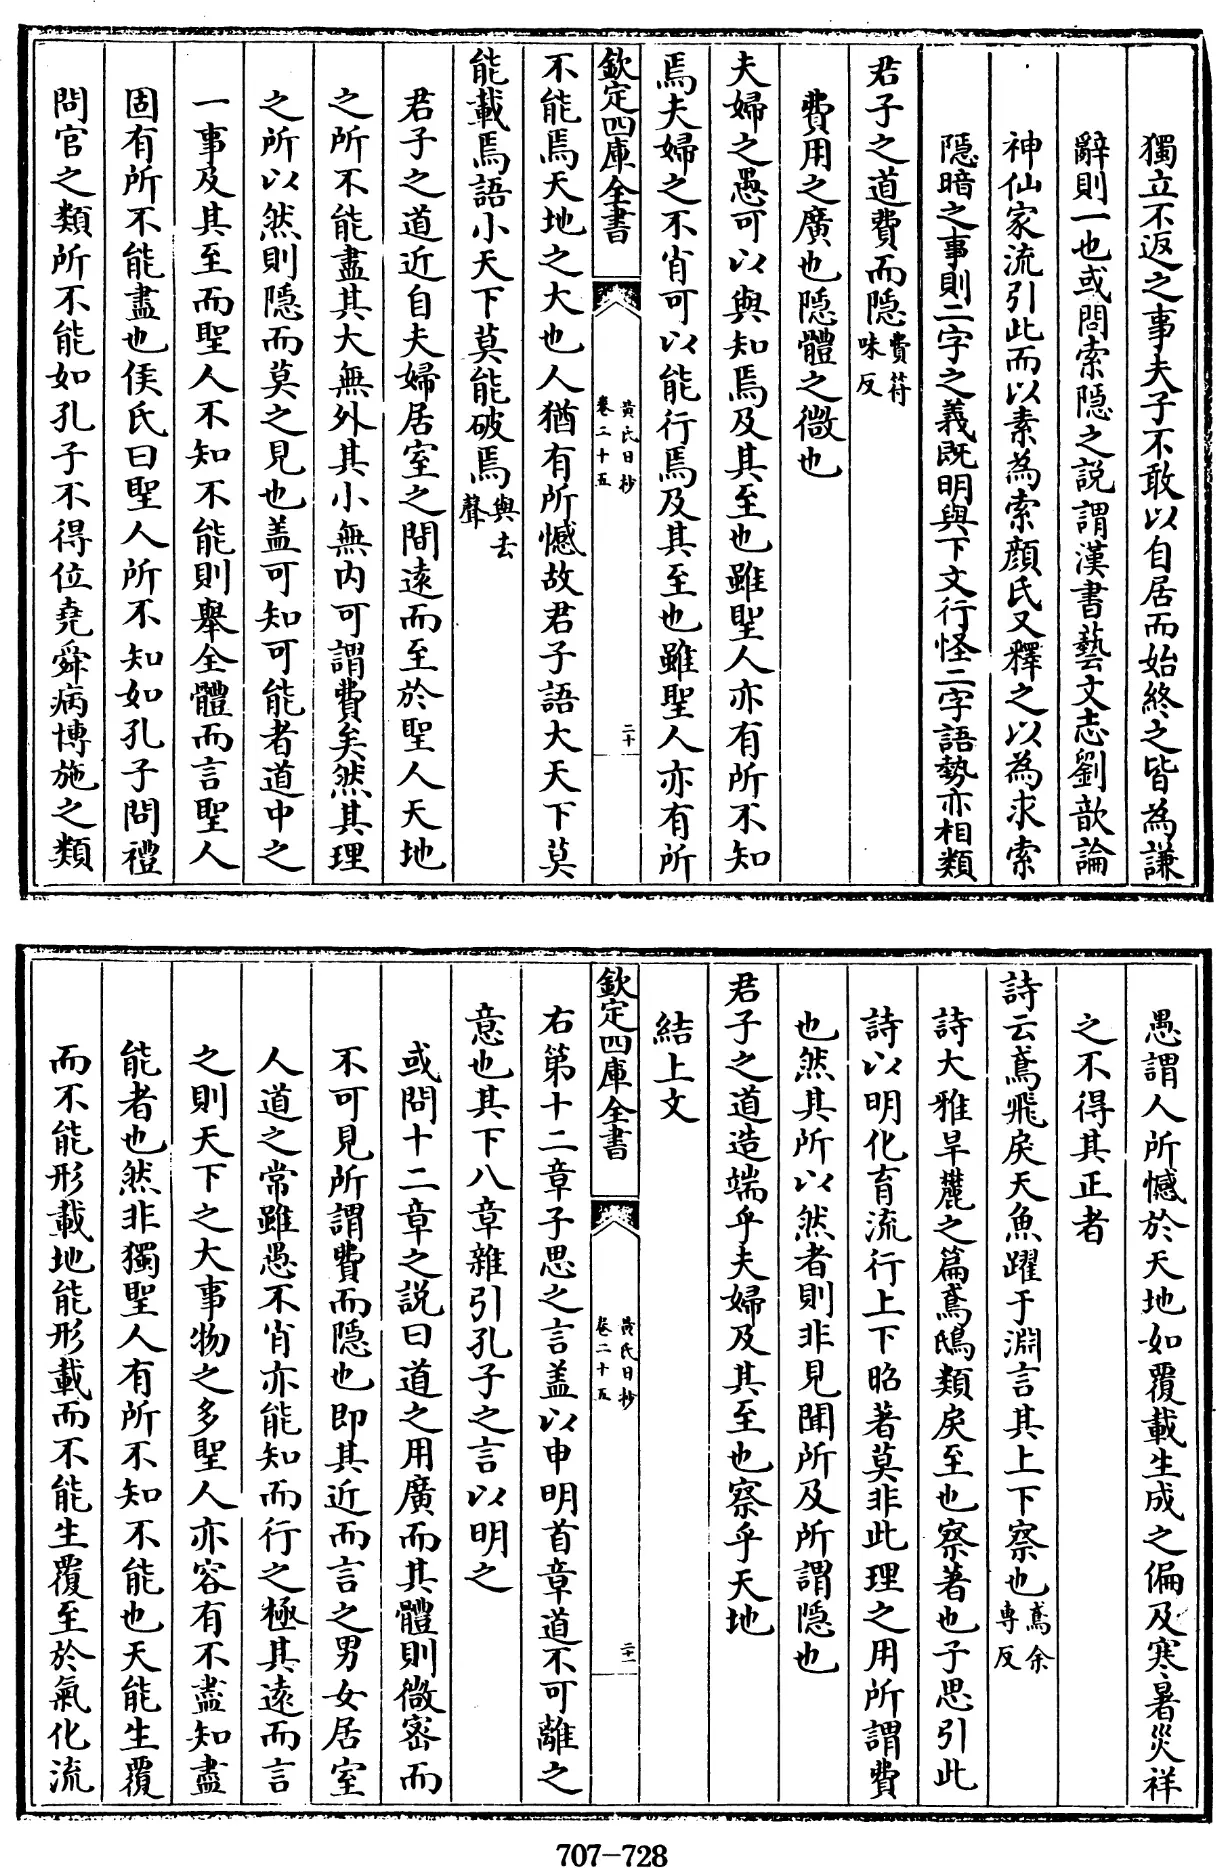 獨立不返之事夫子不敢以自居而始終之皆為謙
辭則一也或問索隠之説謂漢書藝文志劉歆論
神仙家流引此而以素為索顔氏又釋之以為求索
隠暗之事則二字之義既明與下文行怪二字語勢亦相類
君子之道費而隠費符味反
費用之廣也隠體之微也
夫婦之愚可以與知焉及其至也雖聖人亦有所不知
焉夫婦之不肖可以能行焉及其至也雖聖人亦有所
欽定四庫全書
黃氏日抄
卷二十五
二十
不能焉天地之大也人猶有所憾故君子語大天下莫
能載焉語小天下莫能破焉與去聲
君子之道近自夫婦居室之間遠而至於聖人天地
之所不能盡其大無外其小無内可謂費矣然其理
之所以然則隠而莫之見也盖可知可能者道中之
一事及其至而聖人不知不能則舉全體而言聖人
固有所不能盡也侯氏曰聖人所不知如孔子問禮
問官之類所不能如孔子不得位堯舜病博施之類
愚謂人所憾於天地如覆載生成之偏及寒暑災祥
之不得其正者
詩云鳶飛戾天魚躍于淵言其上下察也鳶余専反
詩大雅旱麓之篇鳶鴟類戾至也察著也子思引此
詩以明化育流行上下昭著莫非此理之用所謂費
也然其所以然者則非見聞所及所謂隠也
君子之道造端乎夫婦及其至也察乎天地
結上文
欽定四庫全書
黃氏日抄
卷二十五
二十一
右第十二章子思之言盖以申明首章道不可離之
意也其下八章雜引孔子之言以明之
或問十二章之説曰道之用廣而其體則微宻而
不可見所謂費而隠也即其近而言之男女居室
人道之常雖愚不肖亦能知而行之極其遠而言
之則天下之大事物之多聖人亦容有不盡知盡
能者也然非獨聖人有所不知不能也天能生覆
而不能形載地能形載而不能生覆至於氣化流
707-728